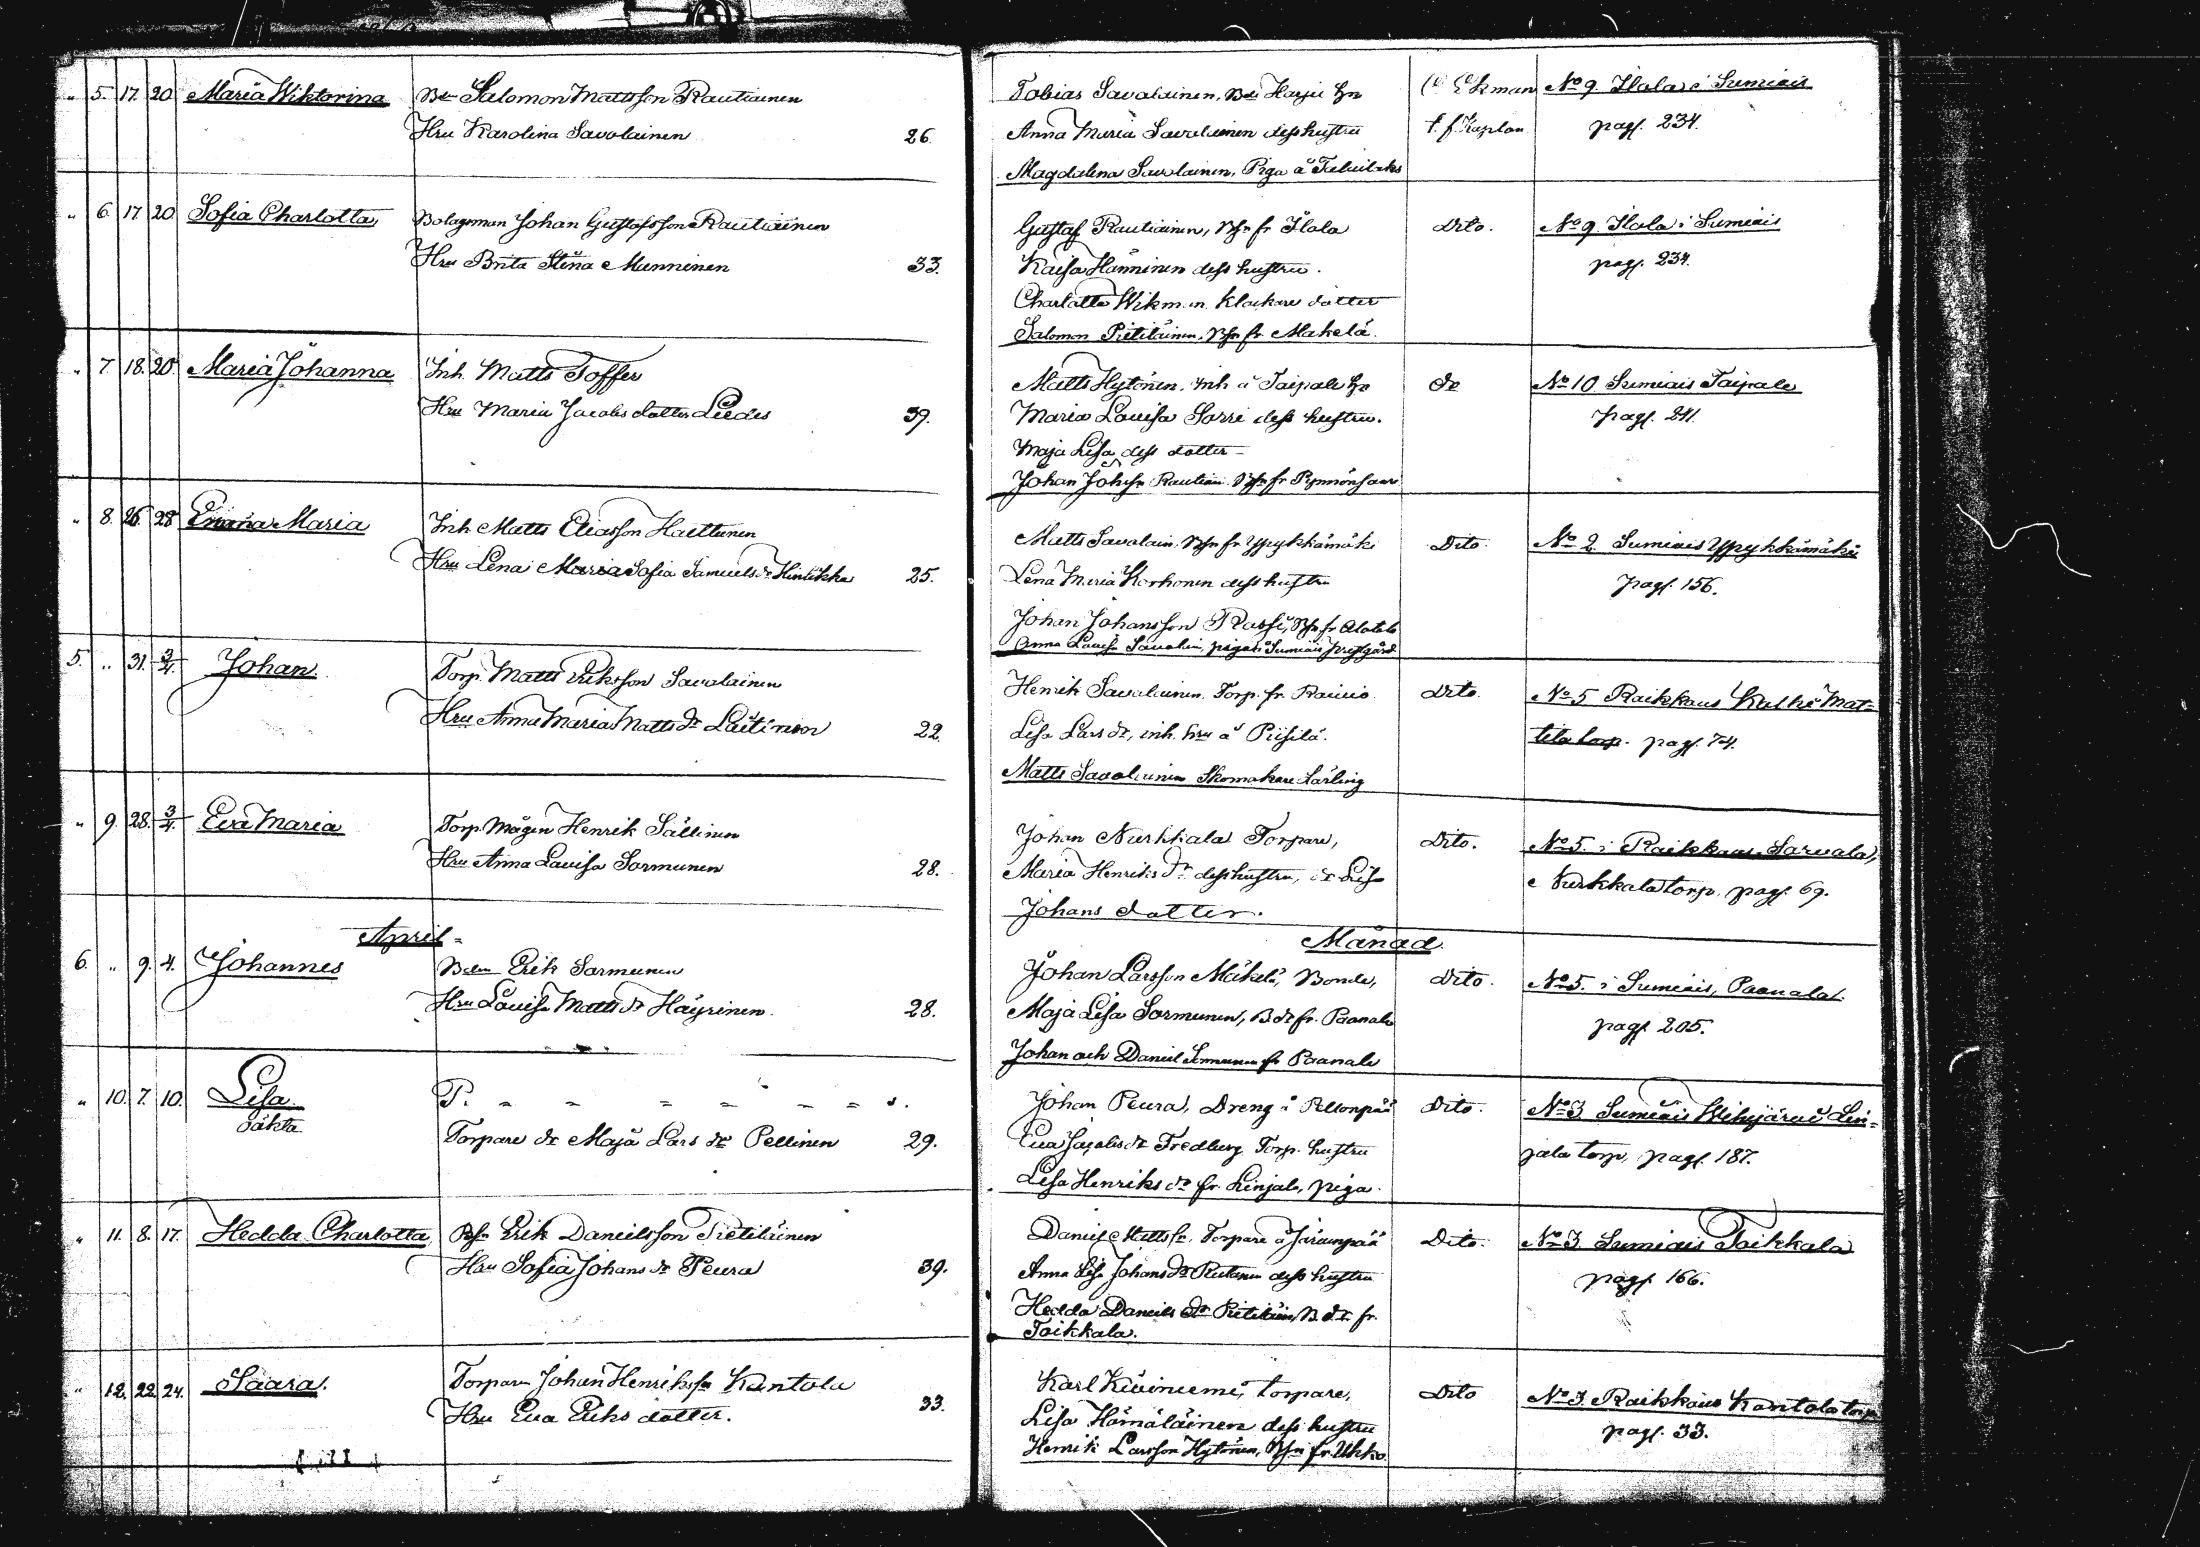 " 5. 17. 20 Maria Wiktorina Bdn Salomon Mattsson Rautiainen
Hru Karolina Savolainen 26.
Tobias Savolainen, Bde Harju
Anna Maria Savolainen dess hustru
Magdalena Savolainen, Piga å
Ekman
t. f. Kaplan
No 9. Ilola i Sumiais
pag. 234.
" 6. 17 20 Sofia Charlotta Bolagsman Johan Gustafsson Rautiainen
Hru Brita Stina Manninen 33.
Gustaf Rautiainen, Bsn fr Ilola
Kaisa Hänninen dess hustru.
Charlotta Wikman Klockare dotter
Salomon Pietiläinen, Bsn fr Makelä.
Dito.
No 9. Ilola i Sumiais
pag. 234.
" 7 18. 20. Maria Johanna Inh. Matts Toffer
Hru Maria Jacobs dotter Leedes 39.
Matts Hytönen, inh å Taipale
Maria Lovisa Sorri dess hustru.
Maja Lisa dess dotter
Johan Johsn Rautiain. Bsn fr
Do
No 10 Sumiais Taipale
pag. 211.
" 8. 26 28 Maria Inh Matts Eliasson Haettunen
Hru Lena Maria Sofia Samuels dr Hintikka 25.
Matts Savolain. Bsn fr Ypykkämäki
Lena Maria Korhonen dess hustru
Johan Johansson Rossi, Bsn fr Alatalo
Anna Lovisa Savolain, pigan Sumiais
Dito.
No 2. Sumiais Ypykkämäki
pag. 156.
5. " 31. 3/4. Johan. Torp. Matts Eriksson Savolainen
Hru Anna Maria Matts dr Laitinen 22.
Henrik Savolainen Torp. fr. Raivio
Lisa Lars dr, inh. hru å Piisilä.
Matts Savolainen Skomakare Lärling
Dito.
No 5 Raikkaus Mat=
tila torp. pag. 74.
" 9. 28. 3/4. Eva Maria Torp. Mågen Henrik Sällinen
Hru Anna Lovisa Sormunen 28.
Johan Nurkkala Torpare,
Maria Henriks dr dess hustru, Lisa
Johans dotter.
Dito.
No 5. i Raikkaus Sarvala,
Nurkkala torp. pag. 69.
April Månad.
6. " 9. 4. Johannes Erik Sormunen
Hru Lovisa Matts dr Häyrinen 28.
Johan Larsson Mäkelä, Bonde,
Maja Lisa Sormunen, B. dr fr. Paanala
Johan och Daniel Sormunen fr Paanala
Dito.
No 5. i Sumiais, Paanala.
pag. 205.
" 10. 7. 10. Lisa. P. - - - - - - s.
oäkta Torpare dr Maja Lars dr Pellinen 29.
Johan Peura, Dreng i Pellonpää
Eva Jacobs dr Fredberg Torp. hustru
Lisa Henriks dr fr. Linjala, piga.
Dito.
No 3 Sumiais Wihijärvi Lin=
jala torp, pag. 187.
" 11. 8. 17. Hedda Charlotta Bsn Erik Danielsson Pietiläinen
Hru Sofia Johans dr Peura 39.
Daniel Mattsson, Torpare å Järvenpää
Anna Lisa Johans dr dess hustru
Hedda Daniels dr Pietiläin, B. dr fr.
Toikkala.
Dito.
No 3 Sumiais Toikkala
pag. 166.
" 12. 22. 24. Saara. Torparn Johan Henriksson Kantola
Hru Eva Eriks dotter. 33.
Karl Kiviniemi, torpare,
Lisa Hämäläinen dess hustru
Henrik Larsson Hytönen, Bsn fr. Ukko.
Dito
No 3. Raikkaus Kantola torp.
pag. 33.